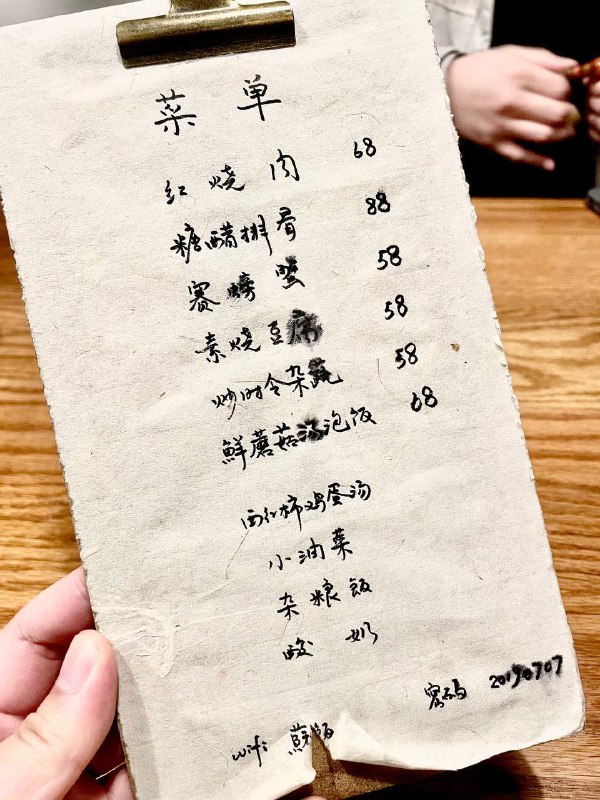 菜单
红烧肉 68
糖醋排骨 88
赛螃蟹 58
素烧豆腐 58
炒时令杂蔬 58
鮮蘑菇汤泡饭 68
西红柿鸡蛋汤
小油菜
杂粮饭
酸奶
密码 20190707
wifi 蘇饭